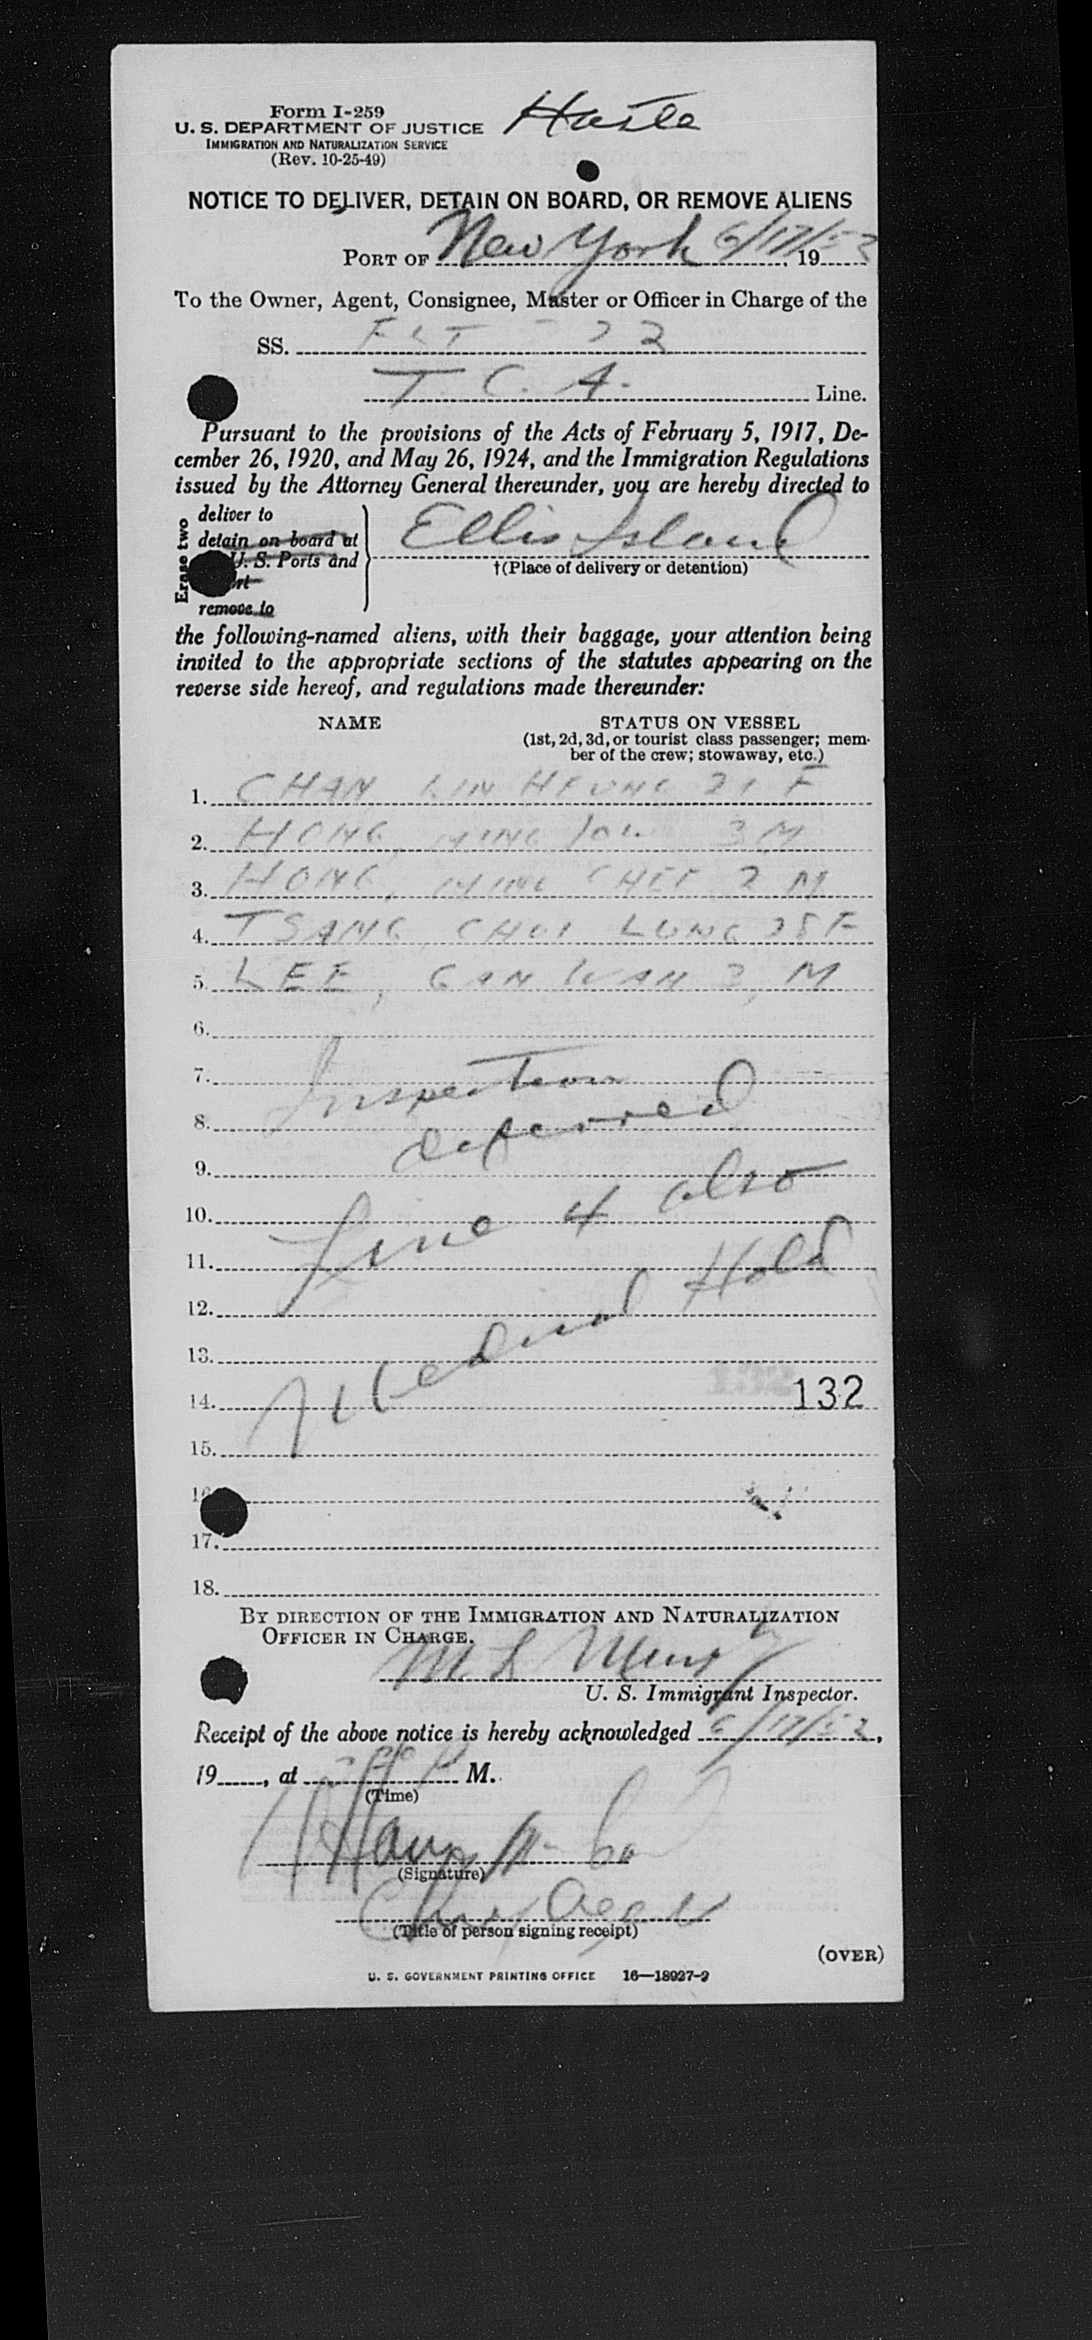 Form I-259
U. S. DEPARTMENT OF JUSTICE
IMMIGRATION AND NATURALIZATION SERVICE
(Rev. 10-25-49)
NOTICE TO DELIVER, DETAIN ON BOARD, OR REMOVE ALIENS
PORT OF New York 6/17/53, 19
To the Owner, Agent, Consignee, Master or Officer in Charge of the
SS. FLT - 22
T. C. A. Line.
Pursuant to the provisions of the Acts of February 5, 1917, De-
cember 26, 1920, and May 26, 1924, and the Immigration Regulations
issued by the Attorney General thereunder, you are hereby directed to
Erase two
deliver to
detain on board at
U. S. Ports and
remove to
Ellis Island
†(Place of delivery or detention)
the following-named aliens, with their baggage, your attention being
invited to the appropriate sections of the statutes appearing on the
reverse side hereof, and regulations made thereunder:
NAME STATUS ON VESSEL
(1st, 2d, 3d, or tourist class passenger; mem-
ber of the crew; stowaway, etc.)
1. CHAN HEUNG F
2. HONG, MING 3 M
3. HONG, MING CHEE 2 M
4. TSANG, CHOI LUNG F
5. LEE, GAN WAH M
6.
7. Inspection
8. deferred
9.
10. Line 4 also
11.
12. Medical Hold
13.
14. 132
15.
16
17.
18.
BY DIRECTION OF THE IMMIGRATION AND NATURALIZATION
OFFICER IN CHARGE.
M. L.
U. S. Immigrant Inspector.
Receipt of the above notice is hereby acknowledged 6/17/53,
19, at M.
(Time)
(Signature)
(Title of person signing receipt)
(OVER)
U. S. GOVERNMENT PRINTING OFFICE 16—18927-2